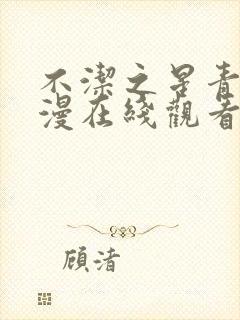 不潔之果青
漫在綫觀看
顾渚